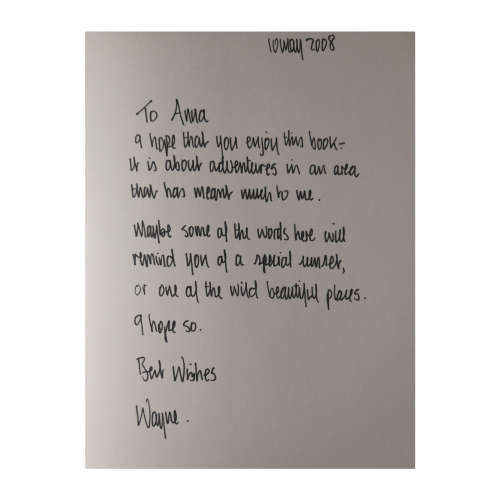 10 May 2008
To Anna
I hope that you enjoy this book -
it is about adventures in an area
that has meant much to me.
Maybe some of the words here will
remind you of a special sunset,
or one of the wild beautiful places.
I hope so.
Best Wishes
Wayne.